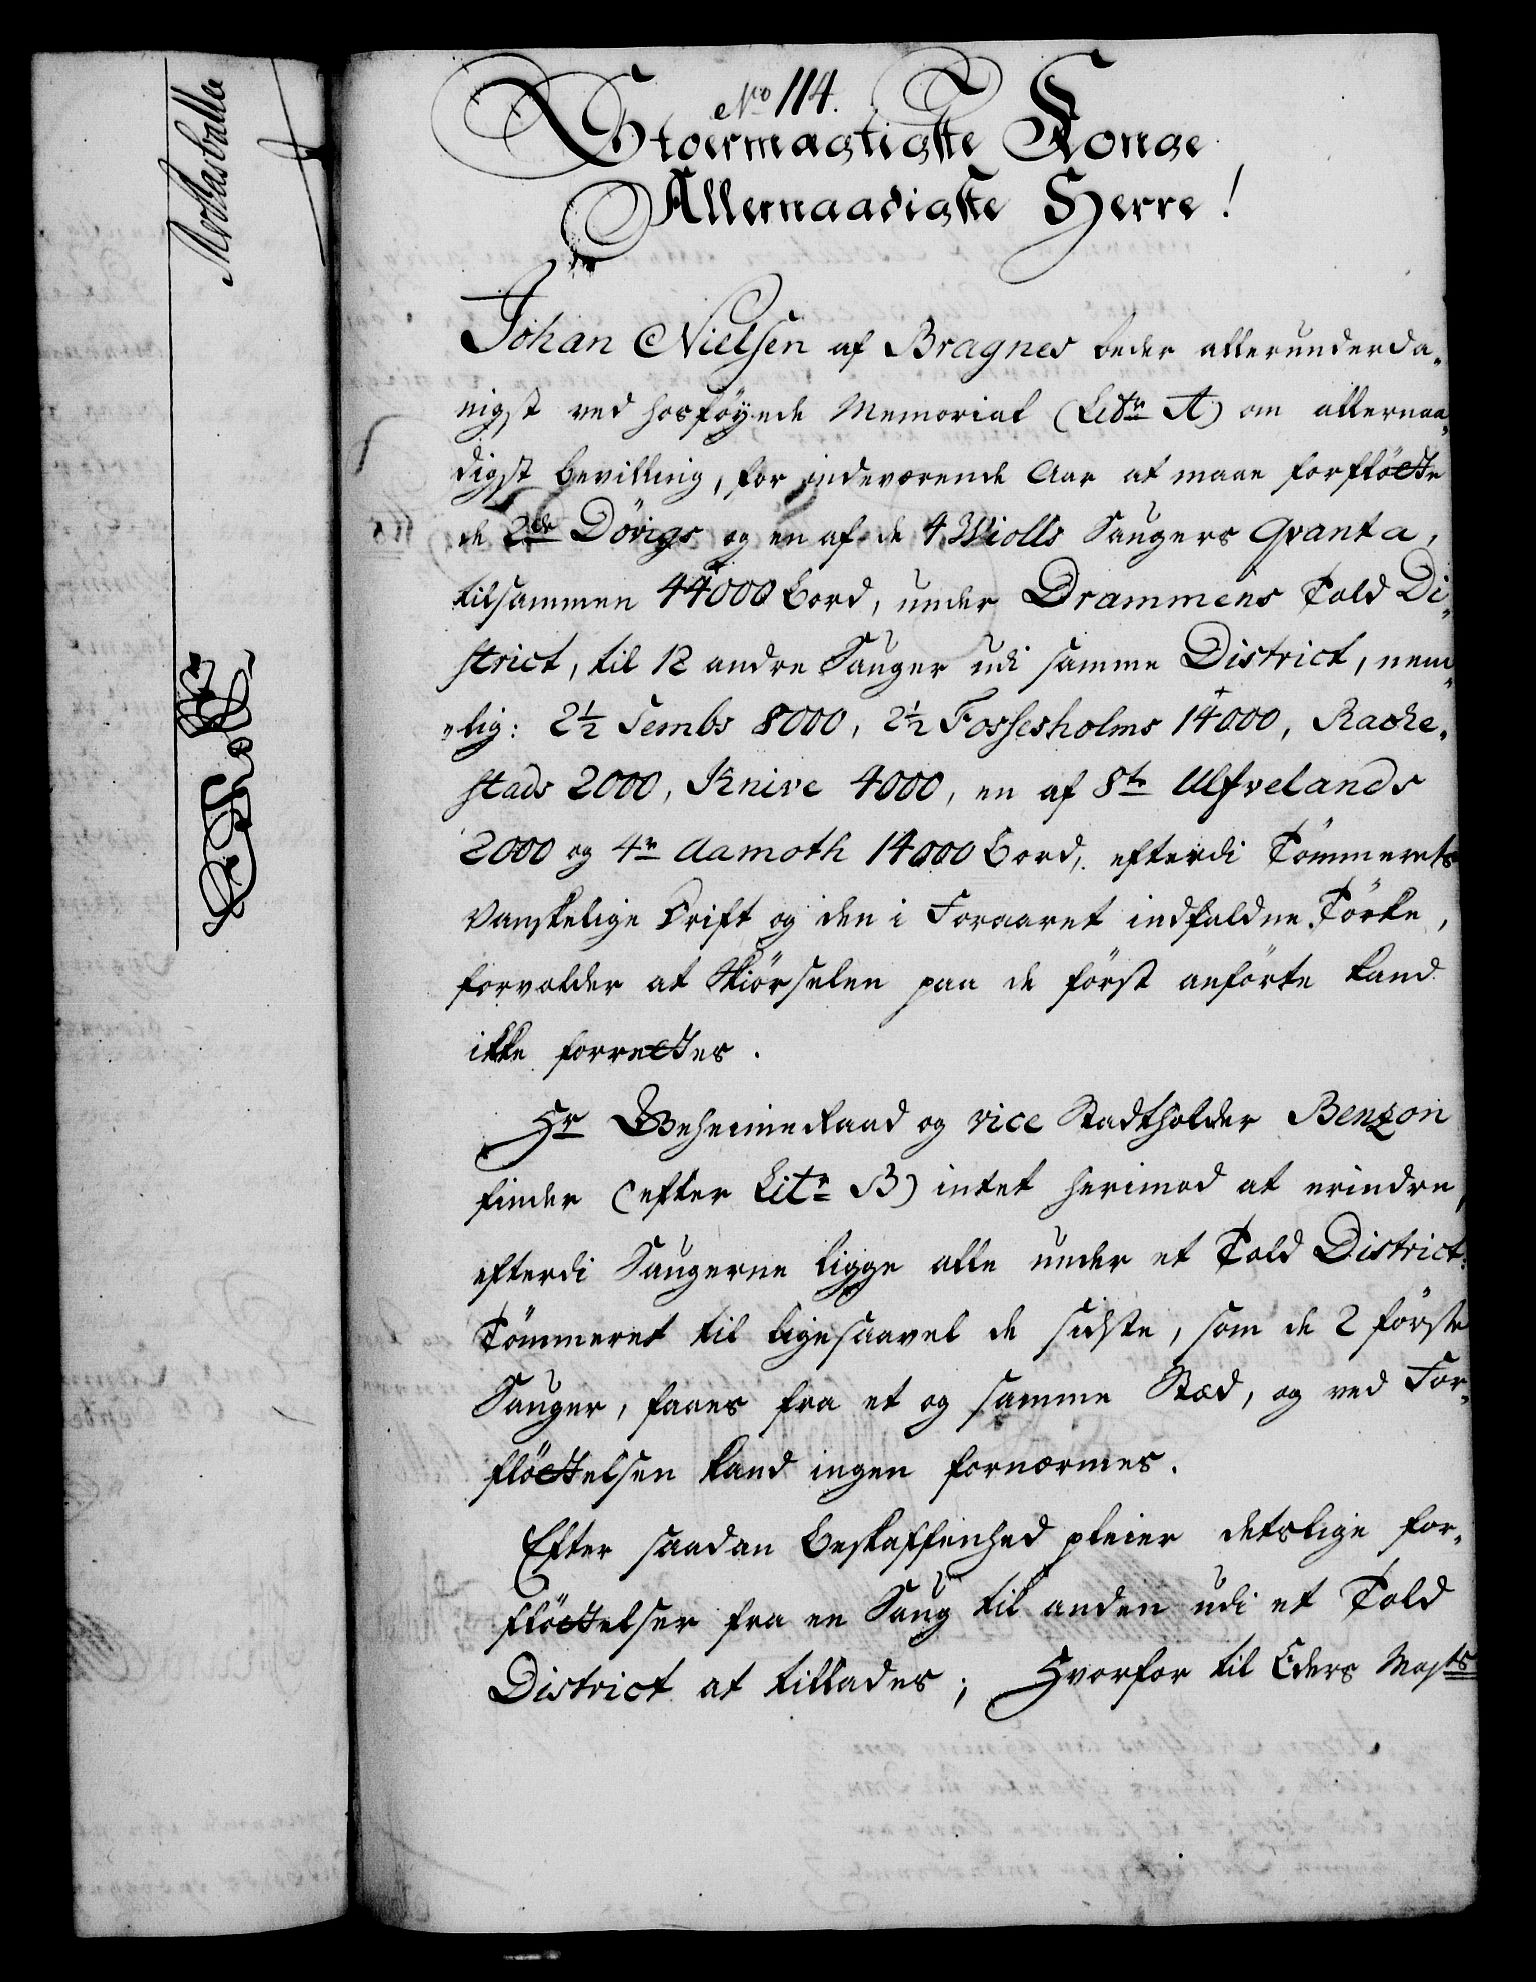 No 114.
Stoermægtigste Konge
Allernaadigste Herre!
Johan Nielsen af Bragnes beder allerunderda-
nigst ved hosföyede Memorial (Litr A) om allernaa-
digst bevilling, for indeværende Aar at maae forflötte
de 2de Dövigs og en af de 4 Wiolls Saugers Qvanta,
tilsammen 44000 Bord, under Drammens Told Di-
strict, til 12 andre Sauger udi samme District, nem-
lig: 2½ Sembs 8000, 2½ Fossesholms 14000, Racke-
stads 2000, Knive 4000, en af 8te Ulfvelands
2000 og 4re Aamoth 14000 Bord, efterdi Tömmerets
Vanskelige Drift og den i Foraaret indfaldne Törke,
forvolder at Skiörselen paa de först anförte kand
ikke forrettes.
Hr Geheimeraad og vice Stadtholder Benzon
finder (efter Litr B) intet herimod at erindre,
efterdi Saugerne ligge alle under et Told District.
Tömmeret til ligesaavel de sidste, som de 2 förste
Sauger, faaes fra et og samme Stæd, og ved For-
flöttelsen kand ingen fornærmes.
Efter saadan Beskaffenhed pleier detslige for-
flöttelser fra en Saug til anden udi et Told
District at tillades; Hvorfor til Eders Mayts